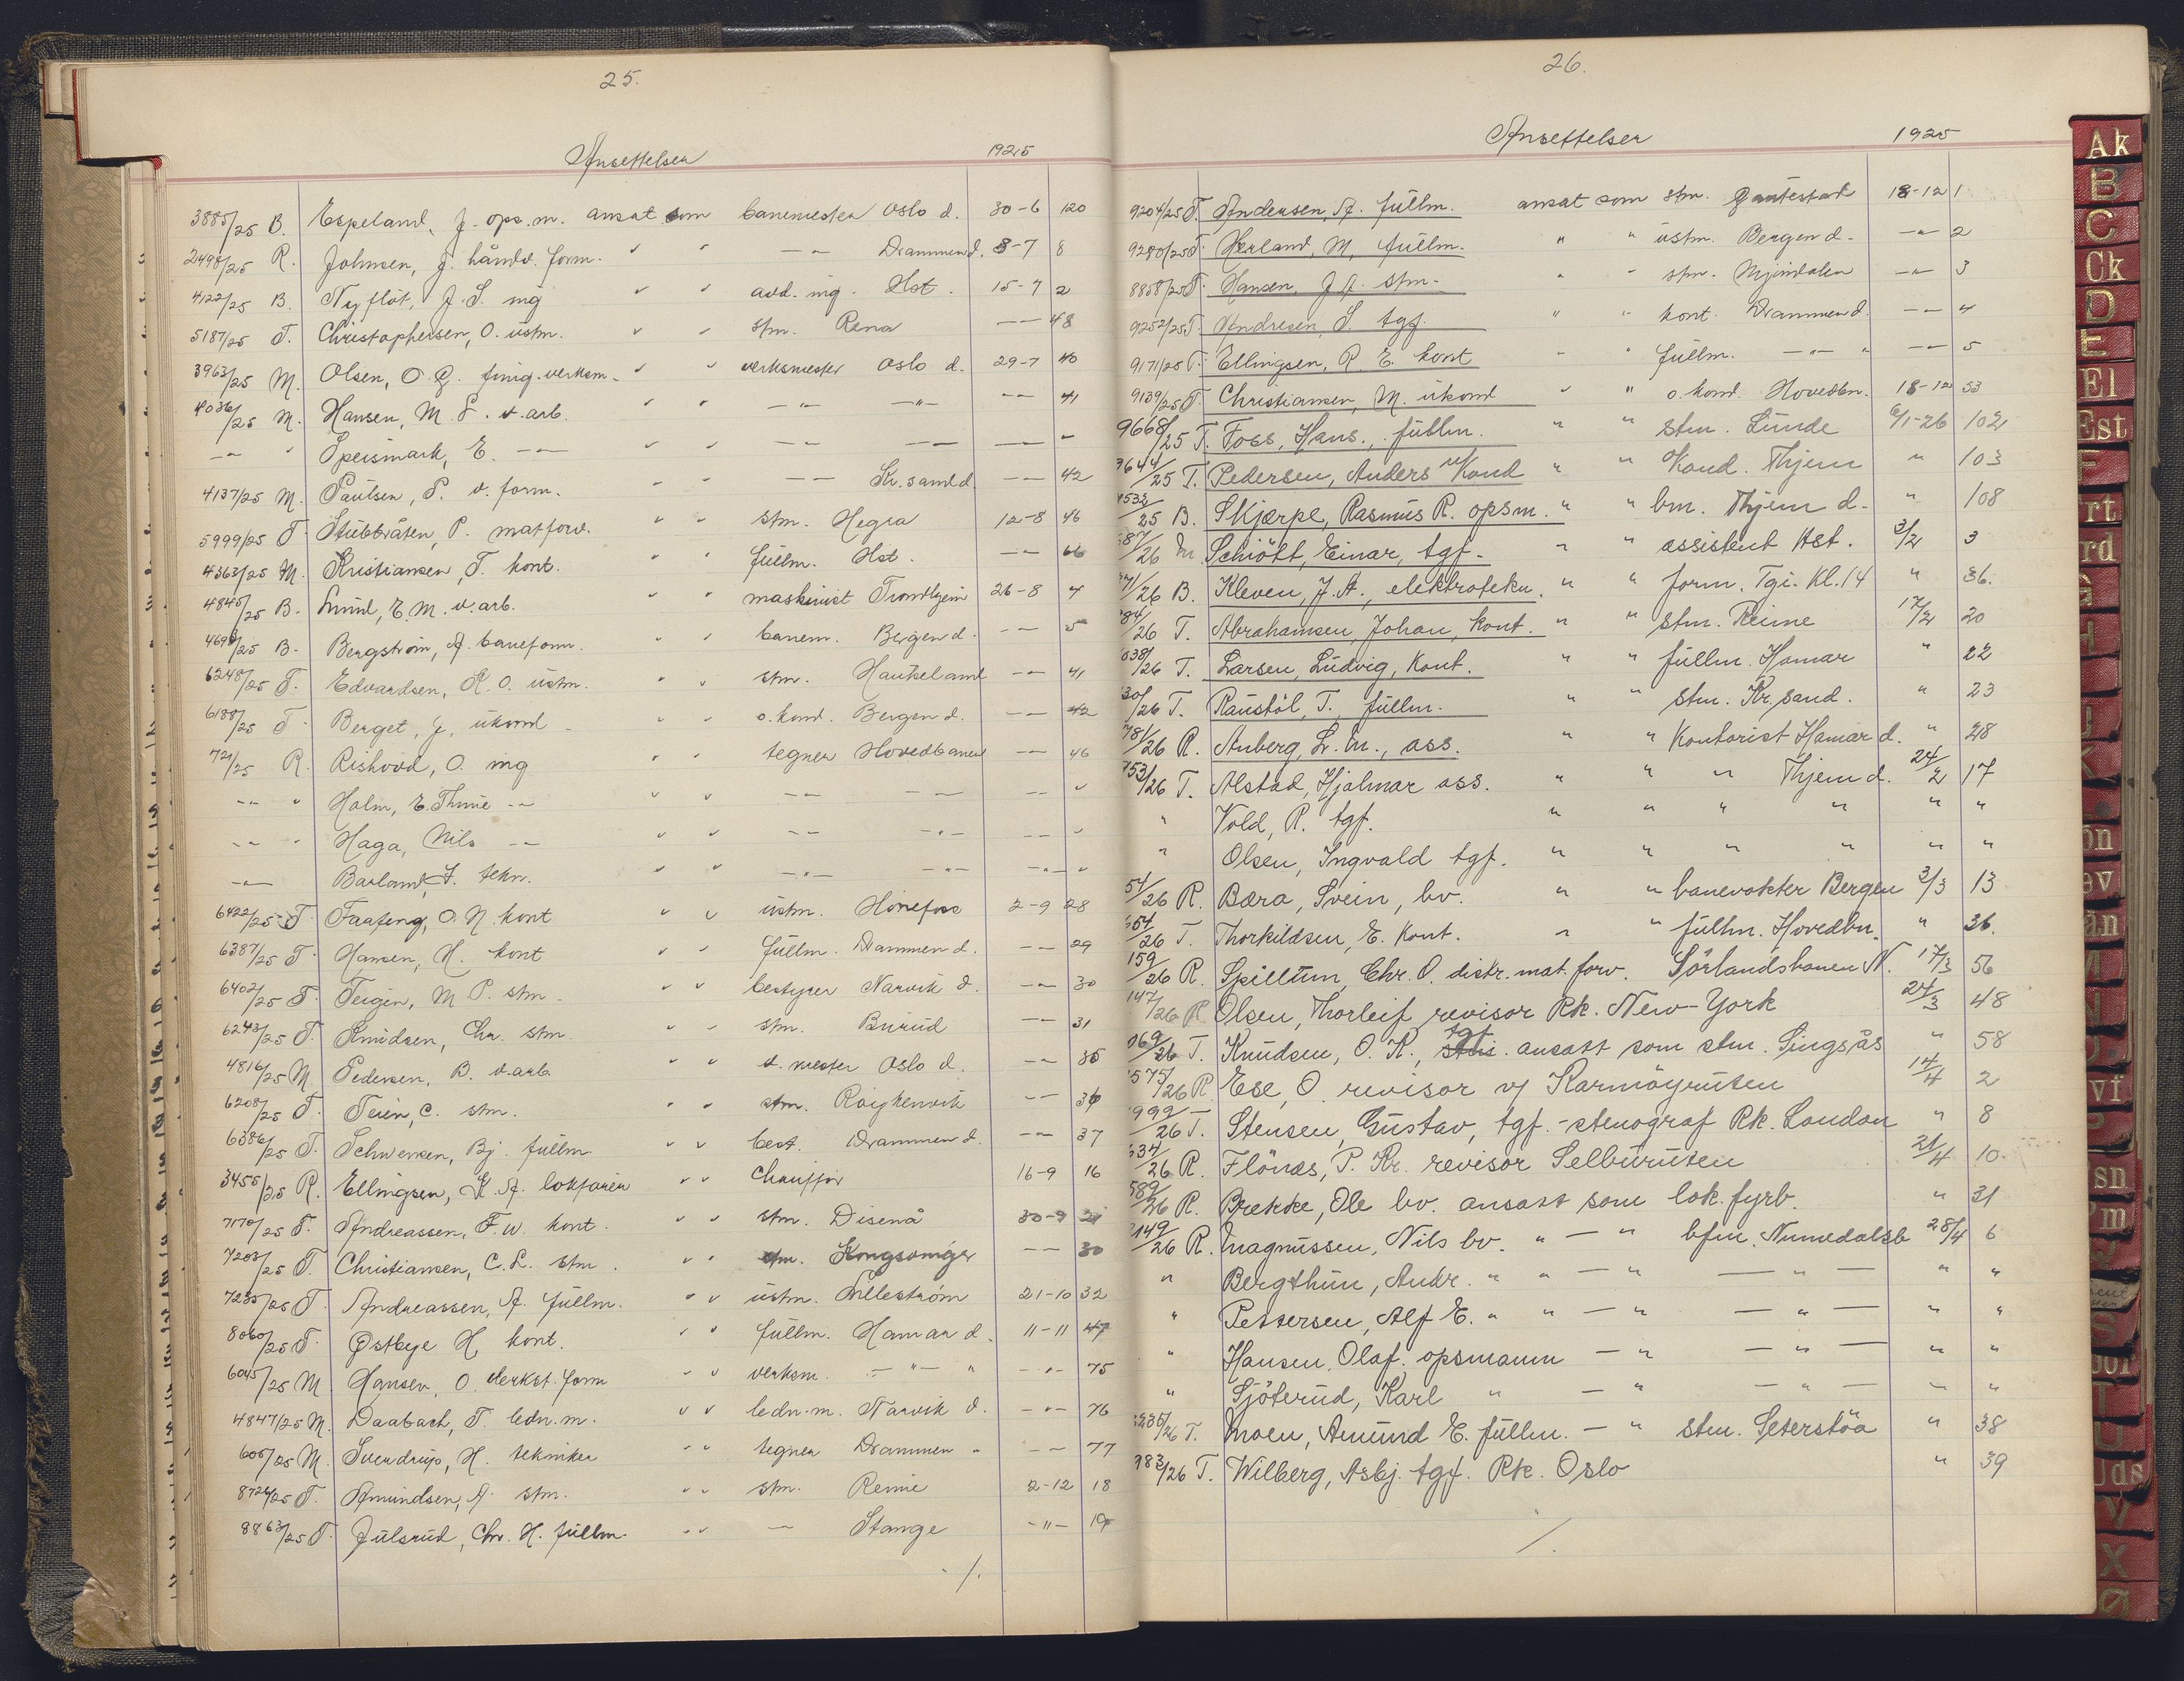 25.
Ansettelser 1925
3885/25 B. Espeland, J. ops.m. ansat som banemester Oslo d. 30-6 120
2498/25 R. Johnsen, J. håndv. form. " " —"— Drammen d. 8-7 8
4122/25 B. Nyflöt, J. S. ing " " avd. ing. Hst. 15-7 2
5187/25 T. Christophersen, O. ustm. " " stm. Rena —— 48
3963/25 M. Olsen, O. G. fung. verksm. " " verksmester Oslo d. 29-7 40
4036/25 M. Hansen, M. L. v. arb. " " —"— —"— —— 41
—"— " Speismark, E. —"— " " —— —— —— "
4137/25 M. Paulsen, P. v. form. " " —— Kr.sand d. —— 42
5999/25 T. Stubbråten, P. matforv. " " stm. Hegra 12-8 46
4363/25 M. Kristiansen, T. kont. " " füllm. Hst. —— 66
4845/25 B. Lund, E. M. v. arb. " " maskinist Trondhjem 26-8 4
4698/25 B. Bergström, A. baneform. " " banem. Bergen d. —— 5
6248/25 T. Edvardsen, K. O. üstm. " " stm. Haukeland —— 41
6188/25 T. Berget, J. ükond " " o.kond. Bergen d. —— 42
721/25 R. Rishovd, O. ing " " tegner Hovedbanen —— 46
—"— " Holm, E. Thime —"— " " —— —— —— "
—"— " Haga, Nils —"— " " —— —"— —— "
—"— Barland, J. tekn. " " —"— —"— —"— "
6422/25 T. Faafeng, O. N. kont " " üstm. Hönefoss 2-9 28
6387/25 T. Hansen, H. kont " " füllm. Drammen d. —— 29
6402/25 T. Teigen, M. P. stm. " " bestyrer Narvik d. —— 30
6243/25 T. Knudsen, Chr. stm. " " stm. Burud —— 31
4816/25 M. Pedersen, B. v.arb. " " v. mester Oslo d. —— 35
6208/25 T. Teien, C. stm. " " stm. Röykenvik —— 36
6386/25 T. Schwensen, Bj. füllm " " best. Drammen d. —— 37
3455/25 R. Ellingsen, K. A. lokfører " " Chauffør 16-9 16
7170/25 T. Andreassen, F. W. kont. " " stm. Disenå 30-9 21
7203/25 T. Christiansen, C. L. stm. " " stm. Kongsvinger —— 30
7235/25 T. Andreassen, A. füllm. " " üstm. Lilleström 21-10 32
8060/25 T. Østbye H. kont. " " füllm. Hamar d. 11-11 47
6045/25 M. Hansen, O. verkst. form " " verksm. —"— " —"— 75
4847/25 M. Daabach, T. ledn.m. " " ledn.m. Narvik d. —"— 76
605/25 M. Sverdrup, H. tekniker " " tegner Drammen " —— 77
8724/25 T. Amundsen, A. stm. " " stm. Reime 2-12 18
8863/25 T. Julsrud, Chr. H. füllm. " " — Stange —"— 19
./.
26.
Ansettelser 1925
9204/25 T. Andersen, A. füllm. ansat som stm. Gautestad 18-12 1
9280/25 T. Herland, M. füllm. " " üstm. Bergen d. —"— 2
8858/25 T. Hansen, J. A. stm. " " stm. Mjöndalen —"— 3
9252/25 T. Andresen, S. tgf. " " kont. Drammen d. —— 4
9171/25 T. Ellingsen, R. E. kont " " füllm. —"— " —— 5
9139/25 T. Christiansen, M. ükond " " o.kond. Hovedbn. 18-12 53
9668/25 T. Foss, Hans., füllm. " " stm. Lunde 6/1-26 102
9644/25 T. Pedersen, Anders u/Kond " " Kond. Thjem " 103
4532/25 B. Skjærpe, Rasmus R. opsm. " " bm. Thjem d. " 108
587/26 M Schiött, Einar, tgf. " " assistent Hst. 3/2 3
71/26 B. Kleven, J. A., elektrotekn. " " form. Tgi. Kl. 14 " 36.
84/26 T. Abrahamsen, Johan, Kont. " " stm. Reime 17/2 20
038/26 T. Larsen, Ludvig, Kont. " " füllm. Hamar " 22
30/26 T. Raustöl, T., füllm. " " stm. Kr. sand. " 23
78/26 R. Anberg, L. M., ass. " " Kontorist Hamar d. " 28
453/26 T. Alstad, Hjalmar ass. " " " Thjem d. 24/2 17
" Vold, R. tgf. " " " " " "
" Olsen, Ingvald tgf. " " " " " "
54/26 R. Bæra, Svein, bv. " " banevokter Bergen 3/3 13
654/26 T. Thorkildsen, E. Kont. " " füllm. Hovedbn. " 36.
159/26 R. Spillum, Chr. O. distr. mat. forv. Sörlandsbanen N. 17/3 56
147/26 R. Olsen, Thorleif revisor Rk. New-York 24/3 48
069/26 T. Knudsen, O. K., tgf. ansatt som stm. Singsås " 58
575/26 R. Ese, O. revisor v/ Karmöyruten 14/4 2
999/26 T. Stensen, Gustav, tgf.-stenograf Rk. London " 8
634/26 R. Flönes, P. Kr. revisor Selburuten 21/4 10.
589/26 R. Brekke, Ole bv. ansatt som lok. fyrb. " 31
2149/26 R. Magnussen, Nils bv. " — " bfm. Numedalsb 28/4 6
" Bergthun, Andr. " " — " — " — " "
" Pettersen, Alf E. " " — " — " — " "
" Hansen, Olaf. opsmann — " — " — " "
" Sjöterud, Karl " — " — " — " "
2235/26 T. Moen, Amund E. füllm. — " stm. Seterstöa " 38
983/26 T. Wilberg, Asbj. tgf. Rk. Oslo " 39
/.
Ak
B
C
Ck
D
E
El
Est
F
rt
rd
G
H
J
K
ön
ev
än
M
N
vf
P
sn
Pm
S
T
U
Uds
V
X
Ø